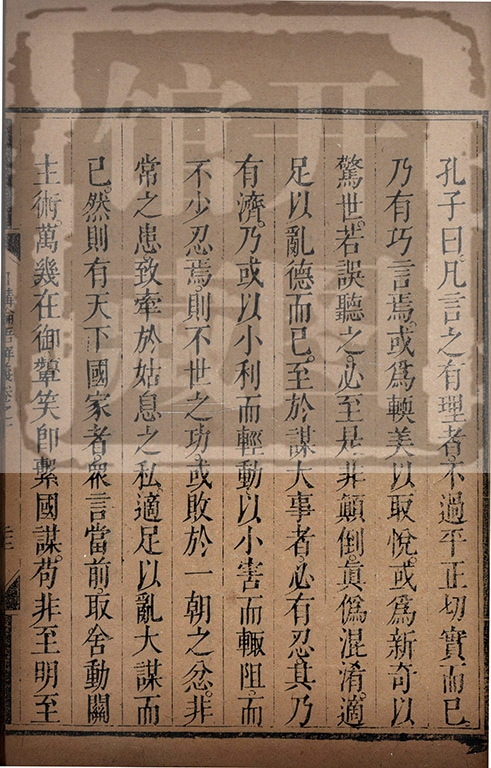 孔子曰凡言之有理者不過平正切實而已
乃有巧言焉或為輭美以取悅或為新奇以
驚世若誤聽之必至是非顛倒眞偽混淆適
足以亂德而已至於謀大事者必有忍其乃
有濟乃或以小利而輕動以小害而輙阻而
不少忍焉則不世之功或敗於一朝之忿非
常之患致牽於姑息之私適足以亂大謀而
已然則有天下國家者衆言當前取舍動關
主術萬幾在御顰笑即繫國謀苟非至明至